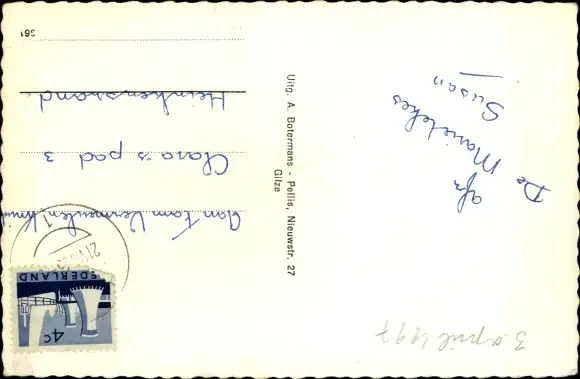 De Marieltches
afz
Susan
Aan Fam Vermeulen
Clara's pad 3
Heinkenszand.
Uitg. A. Botermans - Pellis, Nieuwstr. 27
Gilze
NEDERLAND
4c
361
3 april 1997